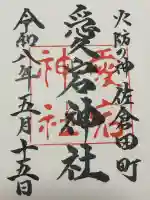 火防の神 佐倉田町
愛宕神社
令和八年五月十五日
愛宕
神社